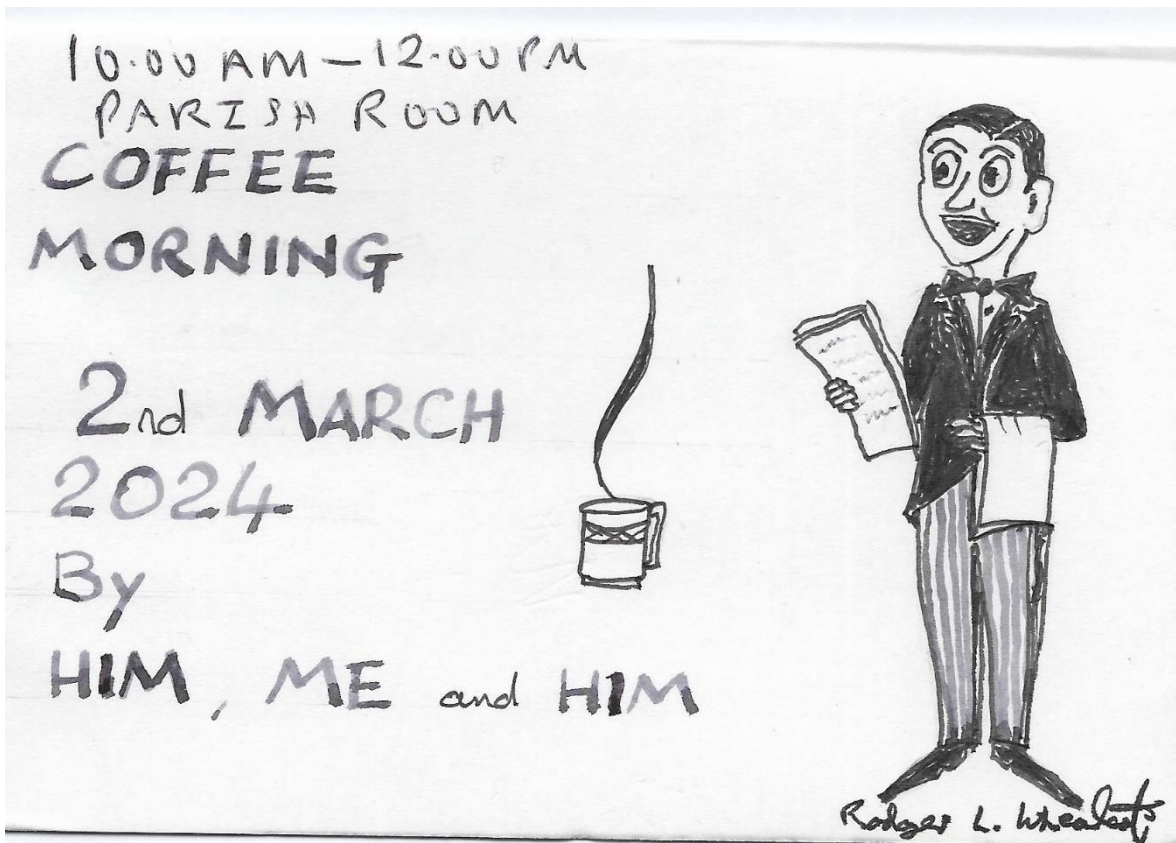 10.00 AM – 12.00 PM
PARISH ROOM
COFFEE
MORNING
2nd MARCH
2024
By
HIM, ME and HIM
Rodger L.